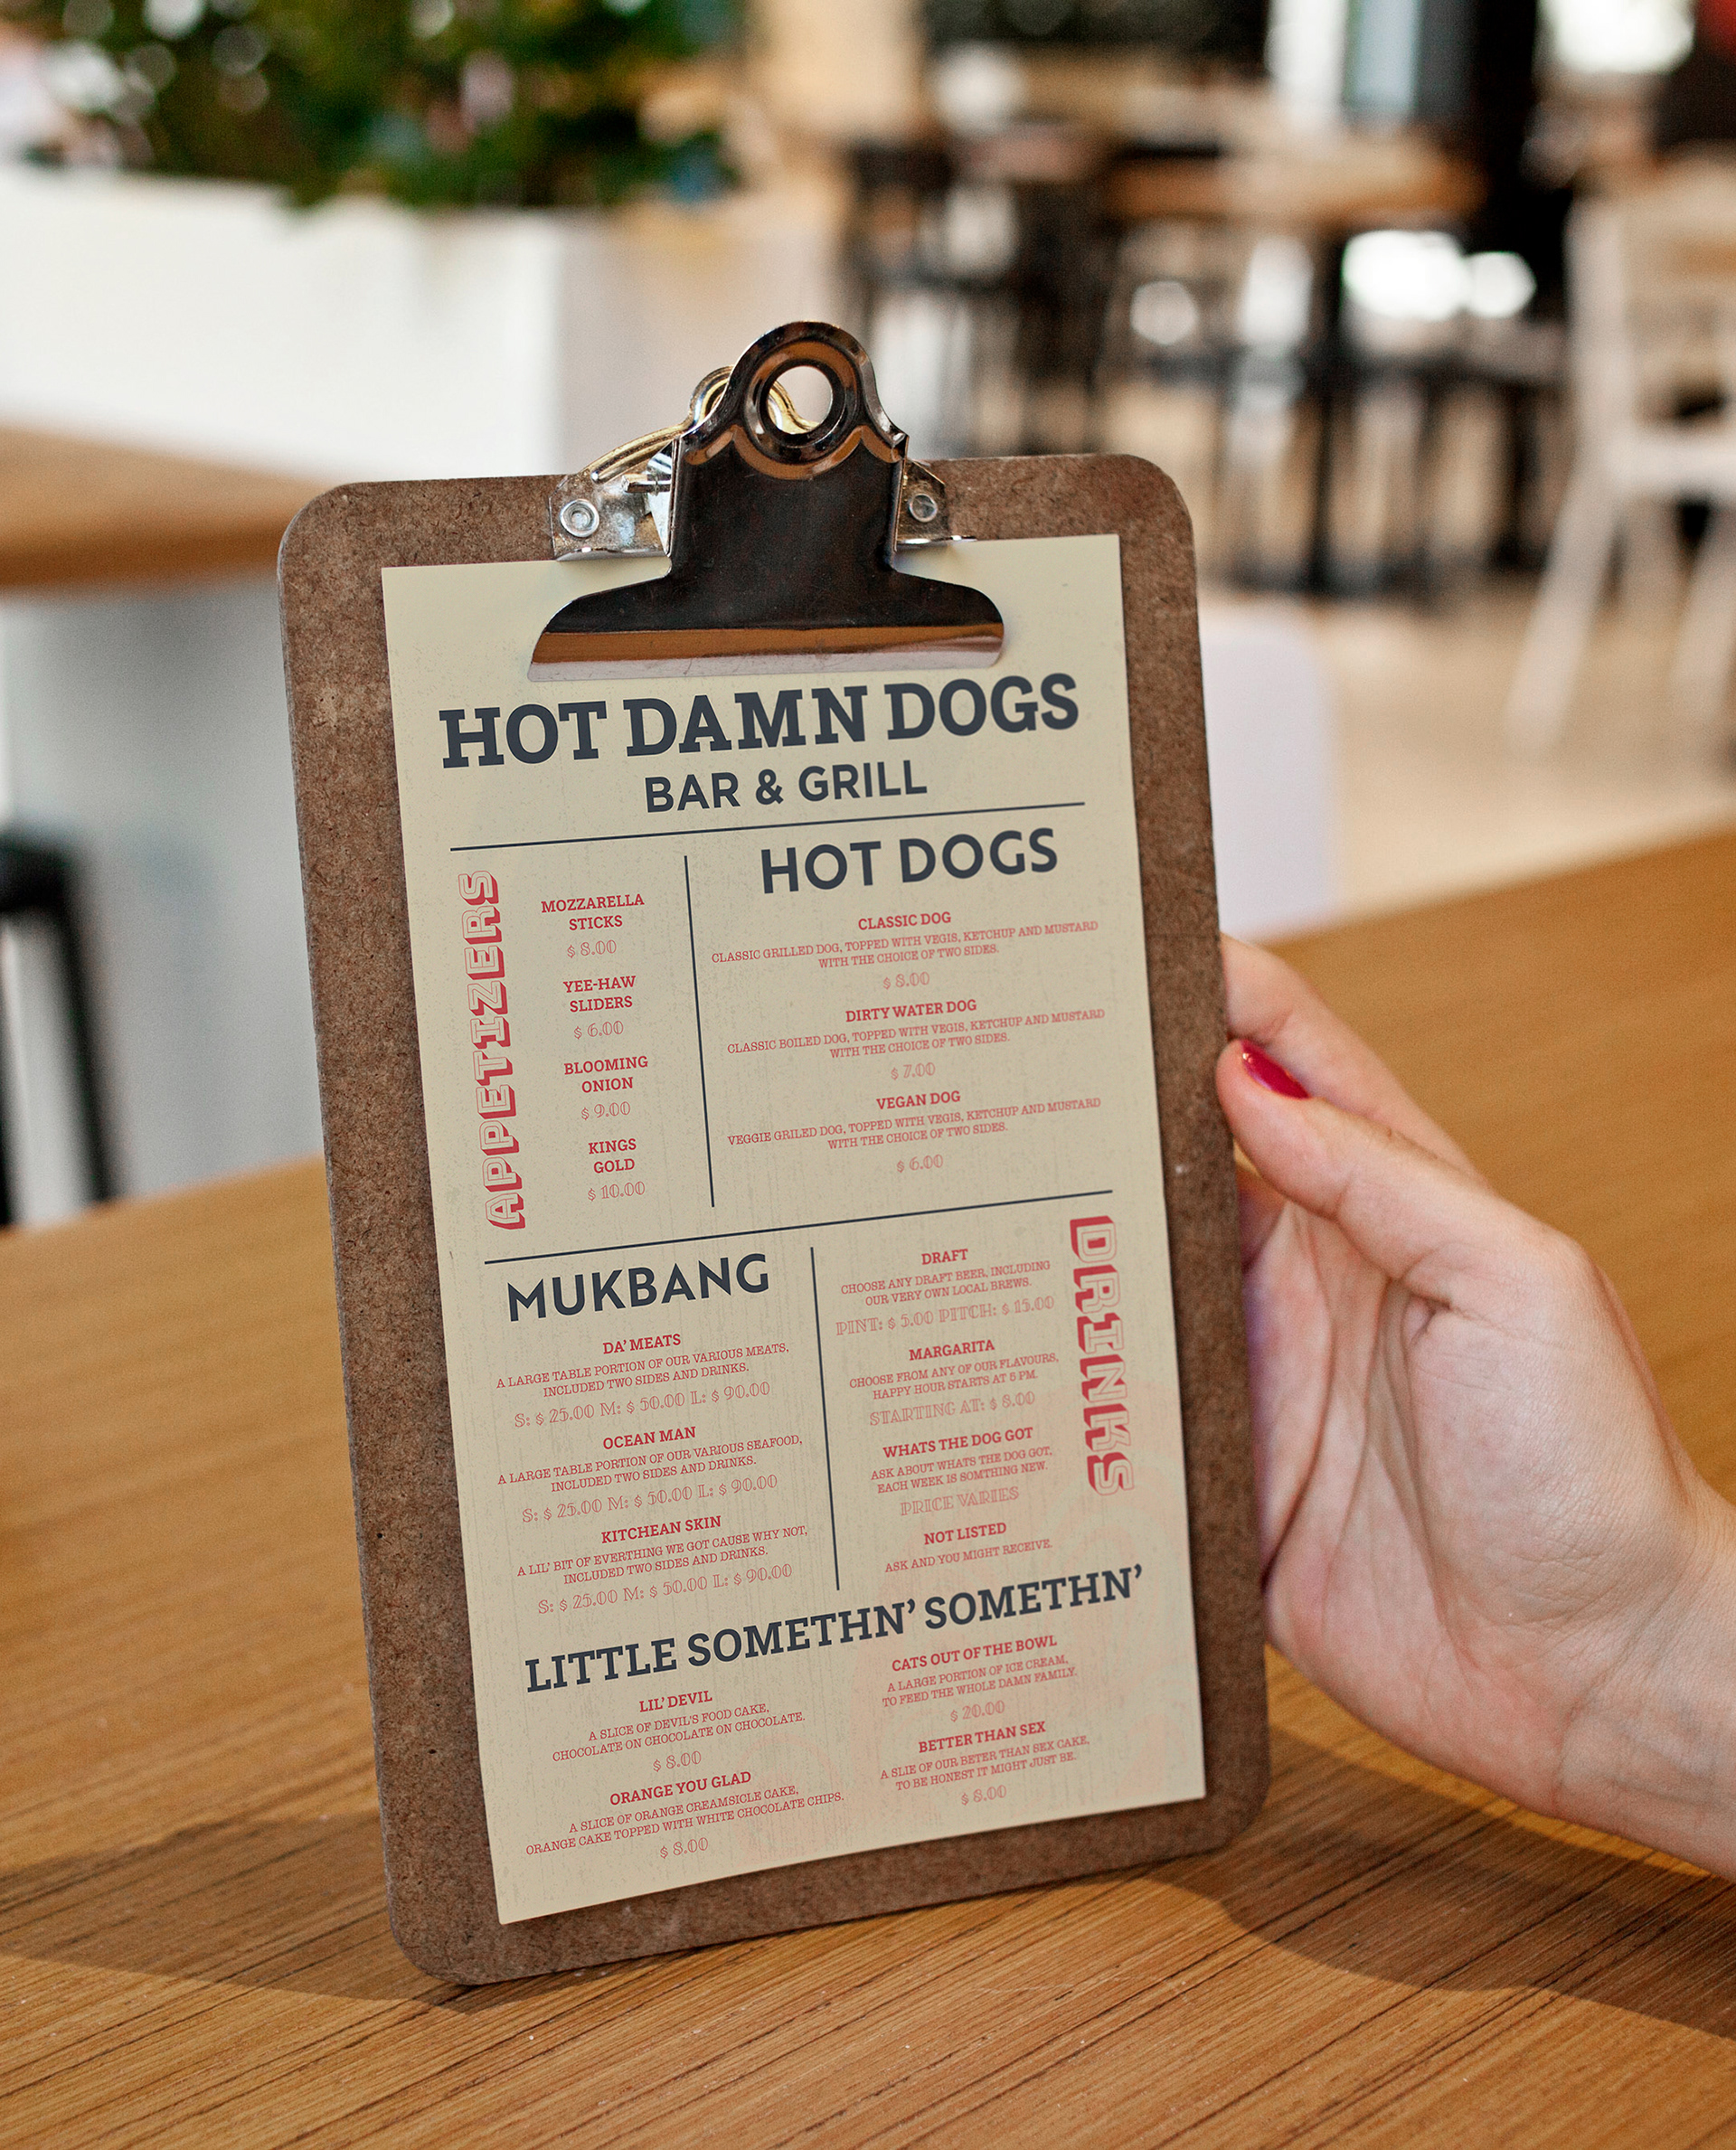 HOT DAMN DOGS
BAR & GRILL
APPETIZERS
MOZZARELLA
STICKS
$ 8.00
YEE-HAW
SLIDERS
$ 6.00
BLOOMING
ONION
$ 9.00
KINGS
GOLD
$ 10.00
HOT DOGS
CLASSIC DOG
CLASSIC GRILLED DOG, TOPPED WITH VEGIS, KETCHUP AND MUSTARD
WITH THE CHOICE OF TWO SIDES.
$ 8.00
DIRTY WATER DOG
CLASSIC BOILED DOG, TOPPED WITH VEGIS, KETCHUP AND MUSTARD
WITH THE CHOICE OF TWO SIDES.
$ 7.00
VEGAN DOG
VEGGIE GRILED DOG, TOPPED WITH VEGIS, KETCHUP AND MUSTARD
WITH THE CHOICE OF TWO SIDES.
$ 6.00
MUKBANG
DA' MEATS
A LARGE TABLE PORTION OF OUR VARIOUS MEATS,
INCLUDED TWO SIDES AND DRINKS.
S: $ 25.00 M: $ 50.00 L: $ 90.00
OCEAN MAN
A LARGE TABLE PORTION OF OUR VARIOUS SEAFOOD,
INCLUDED TWO SIDES AND DRINKS.
S: $ 25.00 M: $ 50.00 L: $ 90.00
KITCHEAN SKIN
A LIL' BIT OF EVERTHING WE GOT CAUSE WHY NOT,
INCLUDED TWO SIDES AND DRINKS.
S: $ 25.00 M: $ 50.00 L: $ 90.00
DRINKS
DRAFT
CHOOSE ANY DRAFT BEER, INCLUDING
OUR VERY OWN LOCAL BREWS.
PINT: $ 5.00 PITCH: $ 15.00
MARGARITA
CHOOSE FROM ANY OF OUR FLAVOURS,
HAPPY HOUR STARTS AT 5 PM.
STARTING AT: $ 8.00
WHATS THE DOG GOT
ASK ABOUT WHATS THE DOG GOT,
EACH WEEK IS SOMTHING NEW.
PRICE VARIES
NOT LISTED
ASK AND YOU MIGHT RECEIVE.
LITTLE SOMETHN' SOMETHN'
LIL' DEVIL
A SLICE OF DEVIL'S FOOD CAKE,
CHOCOLATE ON CHOCOLATE ON CHOCOLATE.
$ 8.00
ORANGE YOU GLAD
A SLICE OF ORANGE CREAMSICLE CAKE,
ORANGE CAKE TOPPED WITH WHITE CHOCOLATE CHIPS.
$ 8.00
CATS OUT OF THE BOWL
A LARGE PORTION OF ICE CREAM,
TO FEED THE WHOLE DAMN FAMILY.
$ 20.00
BETTER THAN SEX
A SLIE OF OUR BETER THAN SEX CAKE,
TO BE HONEST IT MIGHT JUST BE.
$ 8.00